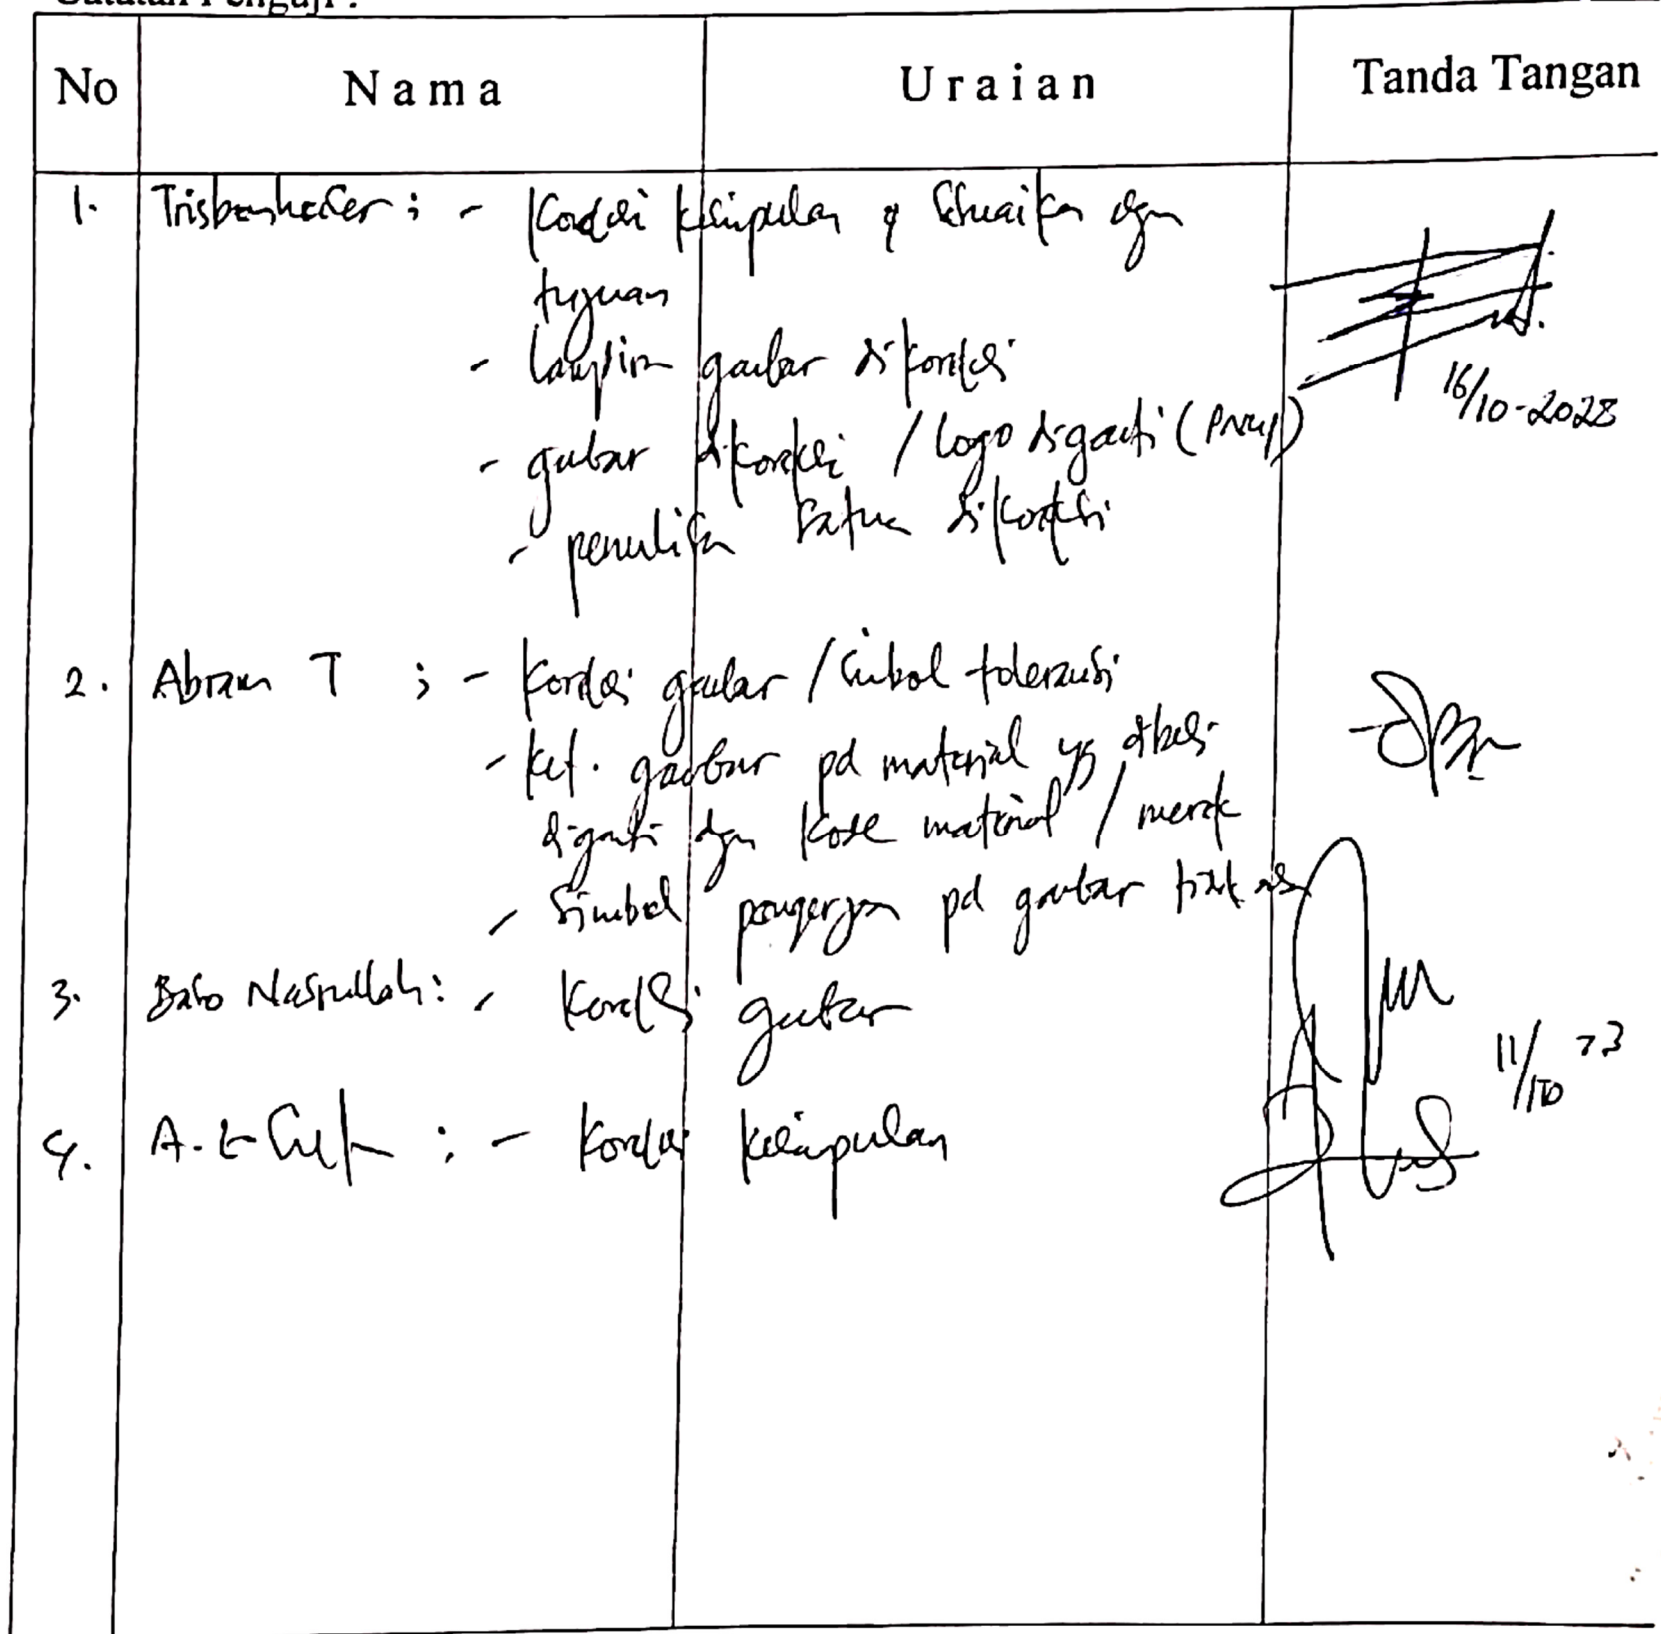 Catatan Penguji :
No Nama Uraian Tanda Tangan
1. ; - Koreksi kesimpulan & sesuaikan dgn
tujuan
- lampiran gambar dikoreksi
16/10-2023
- gambar dikoreksi / logo diganti (PNUP)
- penulisan satuan dikoreksi
2. Abram T ; - Koreksi gambar / simbol toleransi
- ket. gambar pd material yg dibeli
diganti dgn kode material / merek
- Simbol pengerjaan pd gambar
3. Nasrullah : - Koreksi gambar
11/10 23
4. A. : - Koreksi kesimpulan